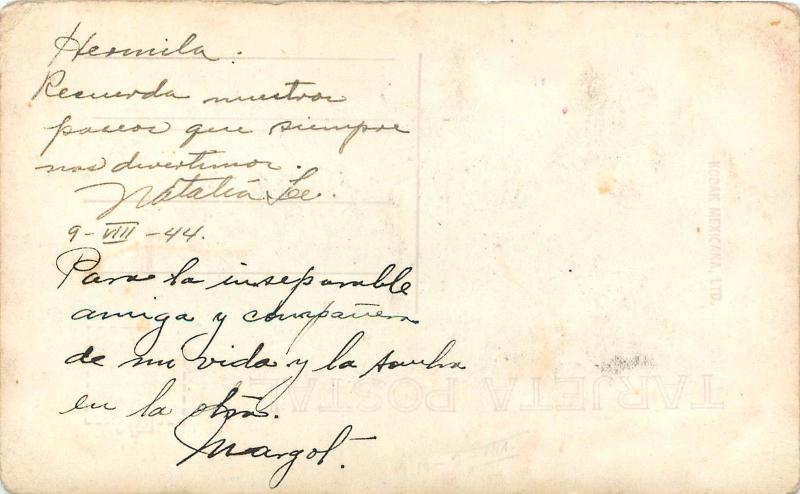 Hermila.
Recuerda nuestros
paseos que siempre
nos divertimos.
Natalia Le.
9-VIII-44.
Para la inseparable
amiga y compañera
de mi vida y la sombra
en la otra.
Margot.
KODAK MEXICANA, LTD.
TARJETA POSTAL